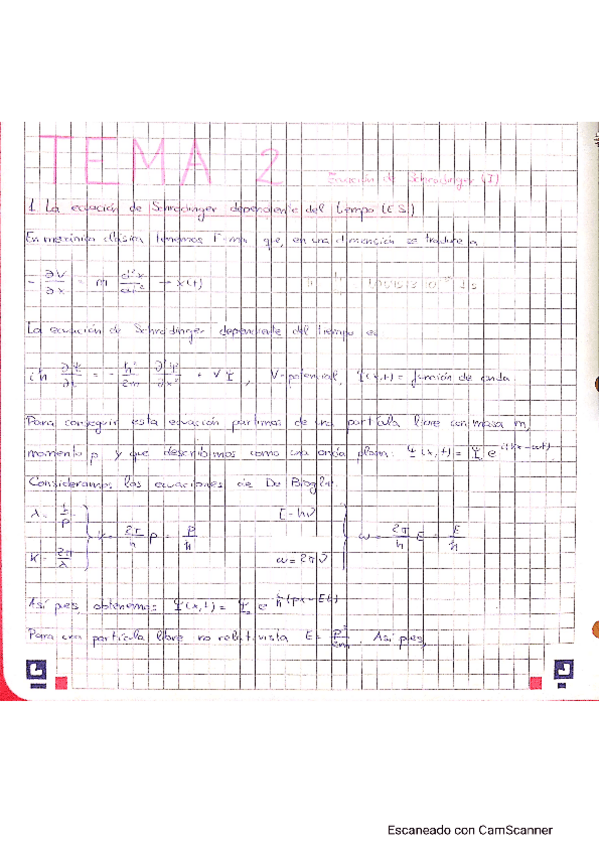 TEMA 2
Ecuación de Schrodinger (I)
1. La ecuación de Schrodinger dependiente del tiempo (ES)
En mecánica clásica tenemos F=ma que, en una dimensión se traduce a
- ∂V/∂x = m d²x/dt² → x(t)
La ecuación de Schrodinger dependiente del tiempo es
iħ ∂Ψ/∂t = - ħ²/2m ∂²Ψ/∂x² + VΨ, V=potencial, Ψ(x,t) = función de onda
Para conseguir esta ecuación partimos de una partícula libre con masa m,
momento p y que describimos como una onda plana: Ψ(x,t) = Ψ₀ e^{i(kx-ωt)}
Consideramos las ecuaciones de De Broglie:
λ = h/p
k = 2π/λ
k = 2π/h p = p/ħ
E = hν
ω = 2πν
ω = 2π/h E = E/ħ
Así pues, obtenemos: Ψ(x,t) = Ψ₀ e^{i/ħ(px-Et)}
Para una partícula libre no relativista E = p²/2m. Así pues,
Escaneado con CamScanner